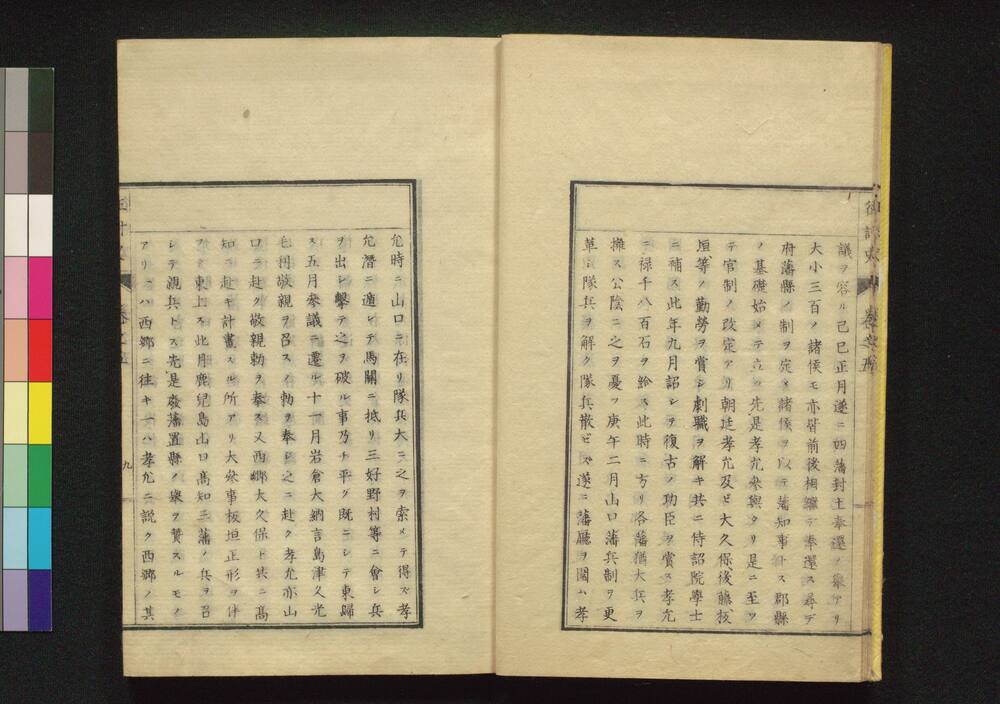 議ヲ容ル己巳正月遂ニ四藩封土奉還ノ擧アリ
大小三百ノ諸侯モ亦皆前後相繼テ奉還ス尋デ
府藩縣ノ制ヲ定メ諸侯ヲ以テ藩知事トス郡縣
ノ基礎始メテ立ツ先是孝允參與タリ是ニ至ツ
テ官制ノ改定アリ朝廷孝允及ビ大久保後藤板
垣等ノ勤勞ヲ賞シ劇職ヲ解キ共ニ侍詔院學士
ニ補ス此年九月詔シテ復古ノ功臣ヲ賞ス孝允
ニ禄千八百石ヲ給ス此時ニ方リ各藩猶大兵ヲ
擁ス公陰ニ之ヲ憂フ庚午二月山口藩兵制ヲ更
革シ隊兵ヲ解ク隊兵散ゼズ遂ニ藩廳ヲ圍ム孝
允時ニ山口ニ在リ隊兵大ニ之ヲ索メテ得ズ孝
允潛ニ遁レテ馬關ニ抵リ三好野村等ニ會シ兵
ヲ出シ擊テ之ヲ破ル事乃チ平グ既ニシテ東歸
ス五月參議ニ遷ル十一月岩倉大納言島津久光
毛利敬親ヲ召スノ勅ヲ奉ジ之ニ赴ク孝允亦山
口ニ赴ク敬親勅ヲ奉ズ又西郷大久保ト共ニ高
知ニ赴キ計畫スル所アリ大參事板垣正形ヲ伴
ヲ東上ス此月鹿兒島山口高知三藩ノ兵ヲ召
シテ親兵トス先是廢藩置縣ノ擧ヲ贊スルモノ
アリ一ハ西郷ニ往キ一ハ孝允ニ説ク西郷ノ其
卷之五
九